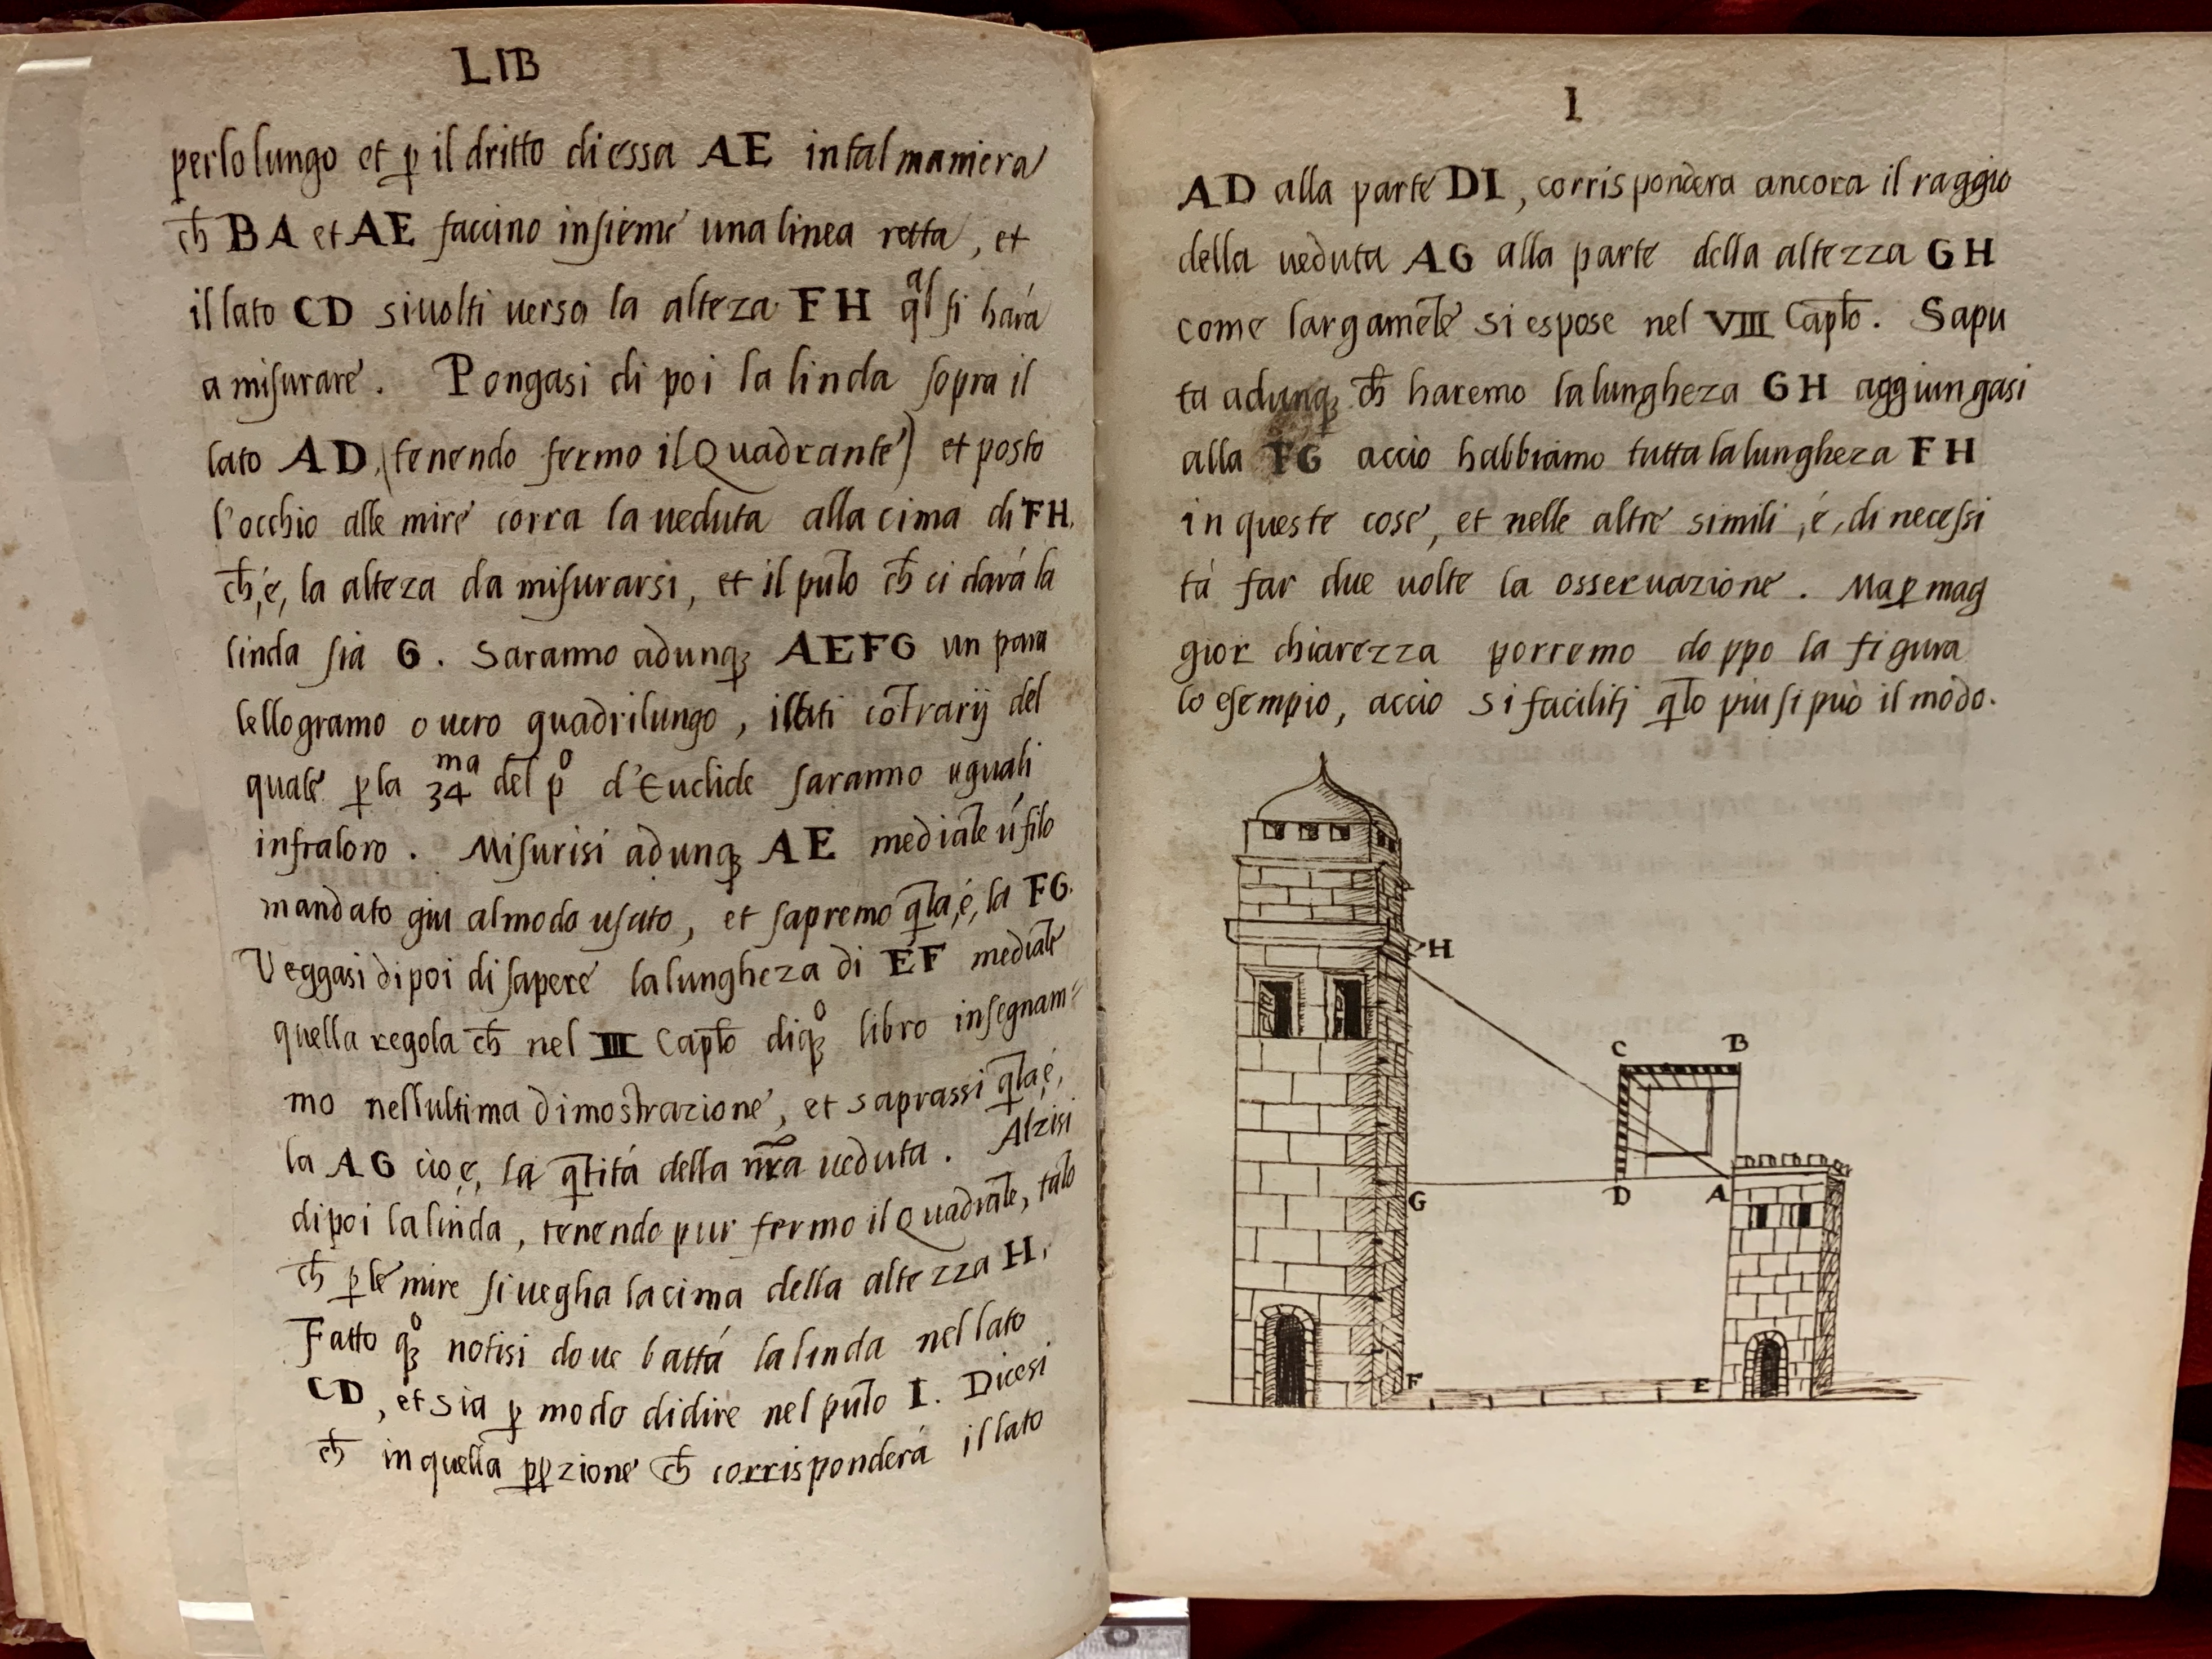 LIB
perlo lungo et ꝑ il dritto di essa AE in tal maniera
ch̄ BA et AE faccino insieme una linea retta, et
il lato CD si uolti uerso la alteza FH q̄al si hará
a misurare. Pongasi di poi la linda sopra il
lato AD, (tenendo fermo il Quadrante) et posto
l'occhio alle mire corra la ueduta alla cima di FH,
ch̄,é, la alteza da misurarsi, et il pūto ch̄ ci dará la
linda sia G. Saranno adunqꝫ AEFG un para
lellogramo o uero quadrilungo, i lati cōtrarij del
quale ꝑ la 34ᵐᵃ del pº d'Euclide saranno uguali
infra loro. Misurisi adunqꝫ AE mediāte ū filo
mandato giu al modo usato, et sapremo q̄ta,é, la FG.
Veggasi di poi di sapere la lungheza di EF mediāte
quella regola ch̄ nel III Capto di qꝫº libro insegnam=
mo nell ultima dimostrazione, et saprassi q̄ta,é,
la AG cioe, la q̄titá della n̄ra ueduta. Alzisi
di poi la linda, tenendo pur fermo il Quadrāte, tāto
ch̄ ꝑ le mire si uegha la cima della altezza H,
Fatto qꝫº notisi doue batta la linda nel lato
CD, et sia ꝑ modo di dire nel pūto I. Dicesi
ch̄ in quella ꝓꝑzione ch̄ corrisponderá il lato
I
AD alla parte DI, corrispondera ancora il raggio
della ueduta AG alla parte della altezza GH
come largamēte si espose nel VIII Capto. Sapu
ta adunqꝫ ch̄ haremo la lungheza GH aggiungasi
alla FG accio habbiamo tutta la lungheza FH
in queste cose, et nelle altre simili ,é, di necessi
tá far due uolte la osseruazione. Ma ꝑ mag
gior chiarezza porremo doppo la figura
lo esempio, accio si faciliti q̄to piu si può il modo.
H
C B
G D A
F E